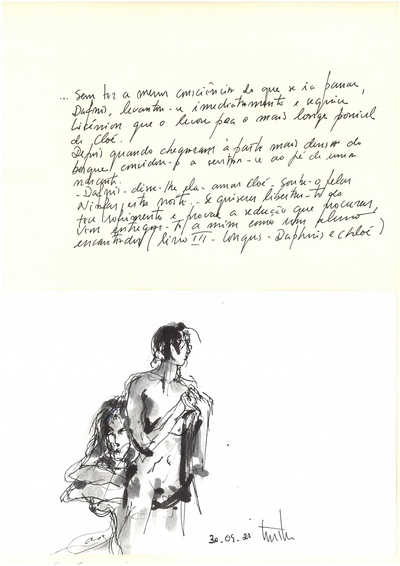 ... Sem ter a menor consciência do que se ia passar,
Dafnis, levantou-se imediatamente e seguiu
Licénion que o levou para o mais longe possível
de Cloé.
Depois quando chegaram à parte mais densa do
bosque convidou-o a sentar-se ao pé de uma
nascente.
- Dafnis - disse-lhe ela - amas Cloé. Soube-o pelas
Ninfas, esta noite... Se quiseres libertar-te do
teu sofrimento e provar a sedução que procuras,
vem entregar-te a mim como um aluno
encantador (livro III - Longus - Daphnis e Chloé)
30.09.21